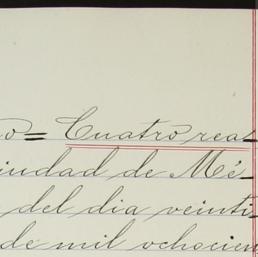 o= Cuatro real-
iudad de Mé-
del dia veinti-
de mil ochocien